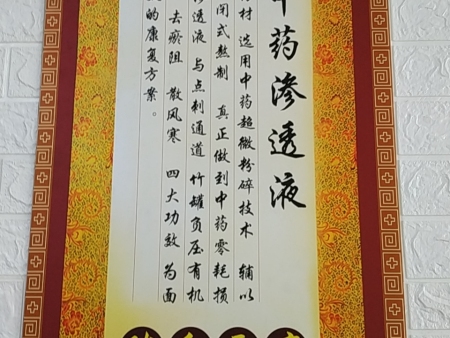 中药渗透液
材 选用中药超微粉碎技术 辅以
闭式熬制 真正做到中药零耗损
透液 与点刺通道 竹罐负压有机
去瘀阻 散风寒 四大功效 为面
的康复方案。